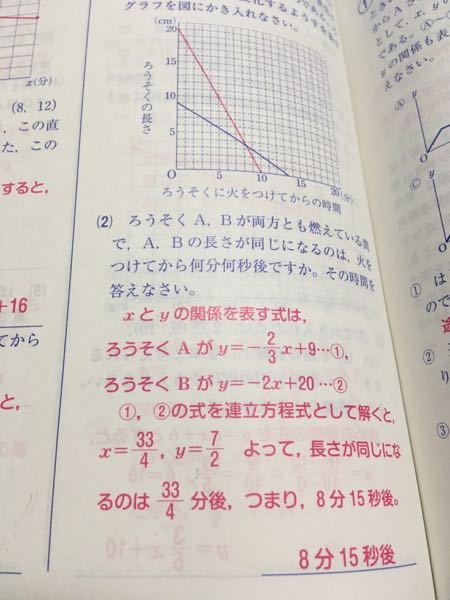 グラフを図にかき入れなさい。
(cm)
20
15
10
5
O
5
10
15
20(分)
ろうそくの長さ
ろうそくに火をつけてからの時間
(2) ろうそく A, B が両方とも燃えている間
で, A, B の長さが同じになるのは, 火を
つけてから何分何秒後ですか。その時間を
答えなさい。
xとyの関係を表す式は,
ろうそく A が y=-2/3x+9…①,
ろうそく B が y=-2x+20…②
①, ②の式を連立方程式として解くと,
x=33/4, y=7/2 よって, 長さが同じにな
るのは 33/4 分後, つまり, 8分15秒後。
8分15秒後
x(分)
(8, 12)
, この直
た, この
すると,
+16
てから
と,